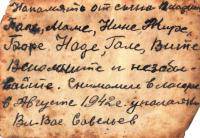 На память от сына Владим
Папе, Маме, Нине, Жире,
Боре Наде, Гале, Вите
Вспомните и незабы-
вайте. Снимались в лагере
в Августе 1942г.
Вл. Вас Савельев